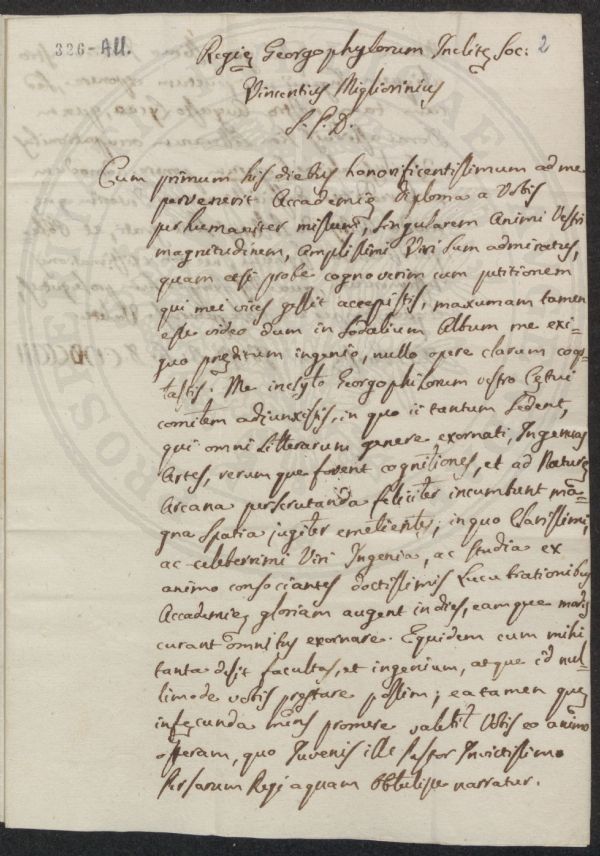 326-All.
2
Regię Georgophylorum Inclitę Soc:
Vincentius Migliorinius
S. P. D.
Cum primum his diebus honorificentissimum ad me
pervenerit Accademię diploma a Vobis
per humaniter missum, singularem Animi Vestri
magnitudinem, Amplissimi Viri sum admiratus,
quam etsi probe cognoverim cum petitionem
qui mei vices gessit accepistis, maxumam tamen
esse video dum in Sodalium Album me exi-
guo pręditum ingenio, nullo opere clarum coop-
tastis. Me inclyto Georgophilorum vestro Cętui
comitem adjunxistis, in quo ii tantum sedent,
qui omni Litterarum genere exornati, Ingenuas
Artes, rerumque fovent cognitiones, et ad Naturę
Arcana perscrutanda feliciter incumbunt ma-
gna spatia jugiter emetientes; in quo Clarissimi,
ac celeberrimi Viri Ingenia, ac studia ex
animo consociantes doctissimis Lucubrationibus
Accademię gloriam augent in dies, eamque modis
curant omnibus exornare. Equidem cum mihi
tanta desit facultas, et ingenium, atque id nul-
limode vobis pręstare possim; ea tamen quę
infęcunda mens promere valebit Vobis eo animo
offeram, quo Juvenis ille Pastor Invictissimo
Persarum Regi aquam obtulisse narratur.